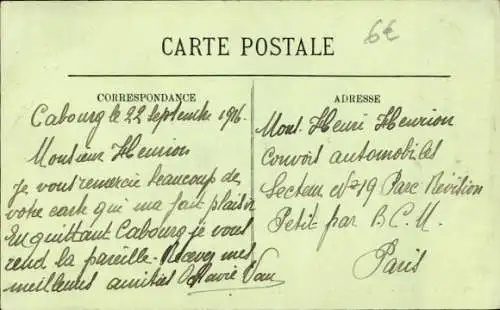 6€
CARTE POSTALE
CORRESPONDANCE
Cabourg le 22 Septembre 1916.
Monsieur Henrion
je vous remercie beaucoup de
votre carte qui ma fait plaisir
En quittant Cabourg je vous
rend la pareille. Recevez mes
meilleures amitiés
ADRESSE
Mons. Henri Henrion
Convois automobiles
Secteur No 19 Parc Révision
Petit par B.C.M.
Paris